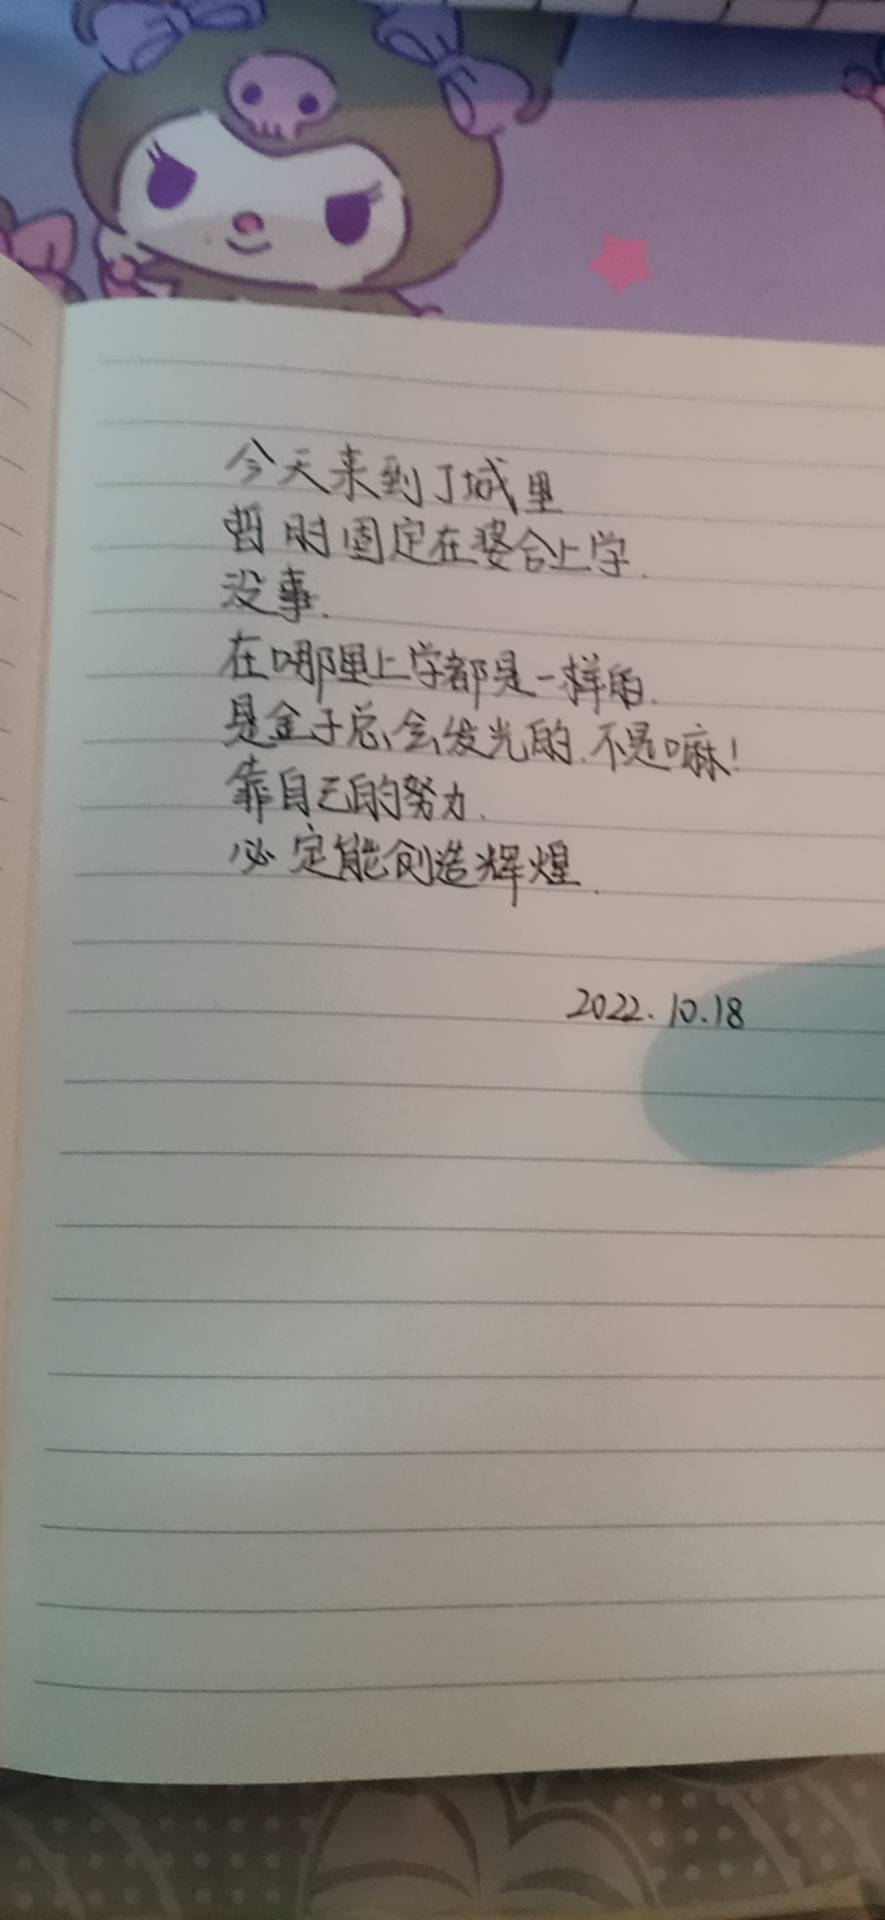 今天来到了城里
暂时固定在婆合上学.
没事.
在哪里上学都是一样的.
是金子总会发光的.不是嘛!
靠自己的努力.
必定能创造辉煌.
2022.10.18